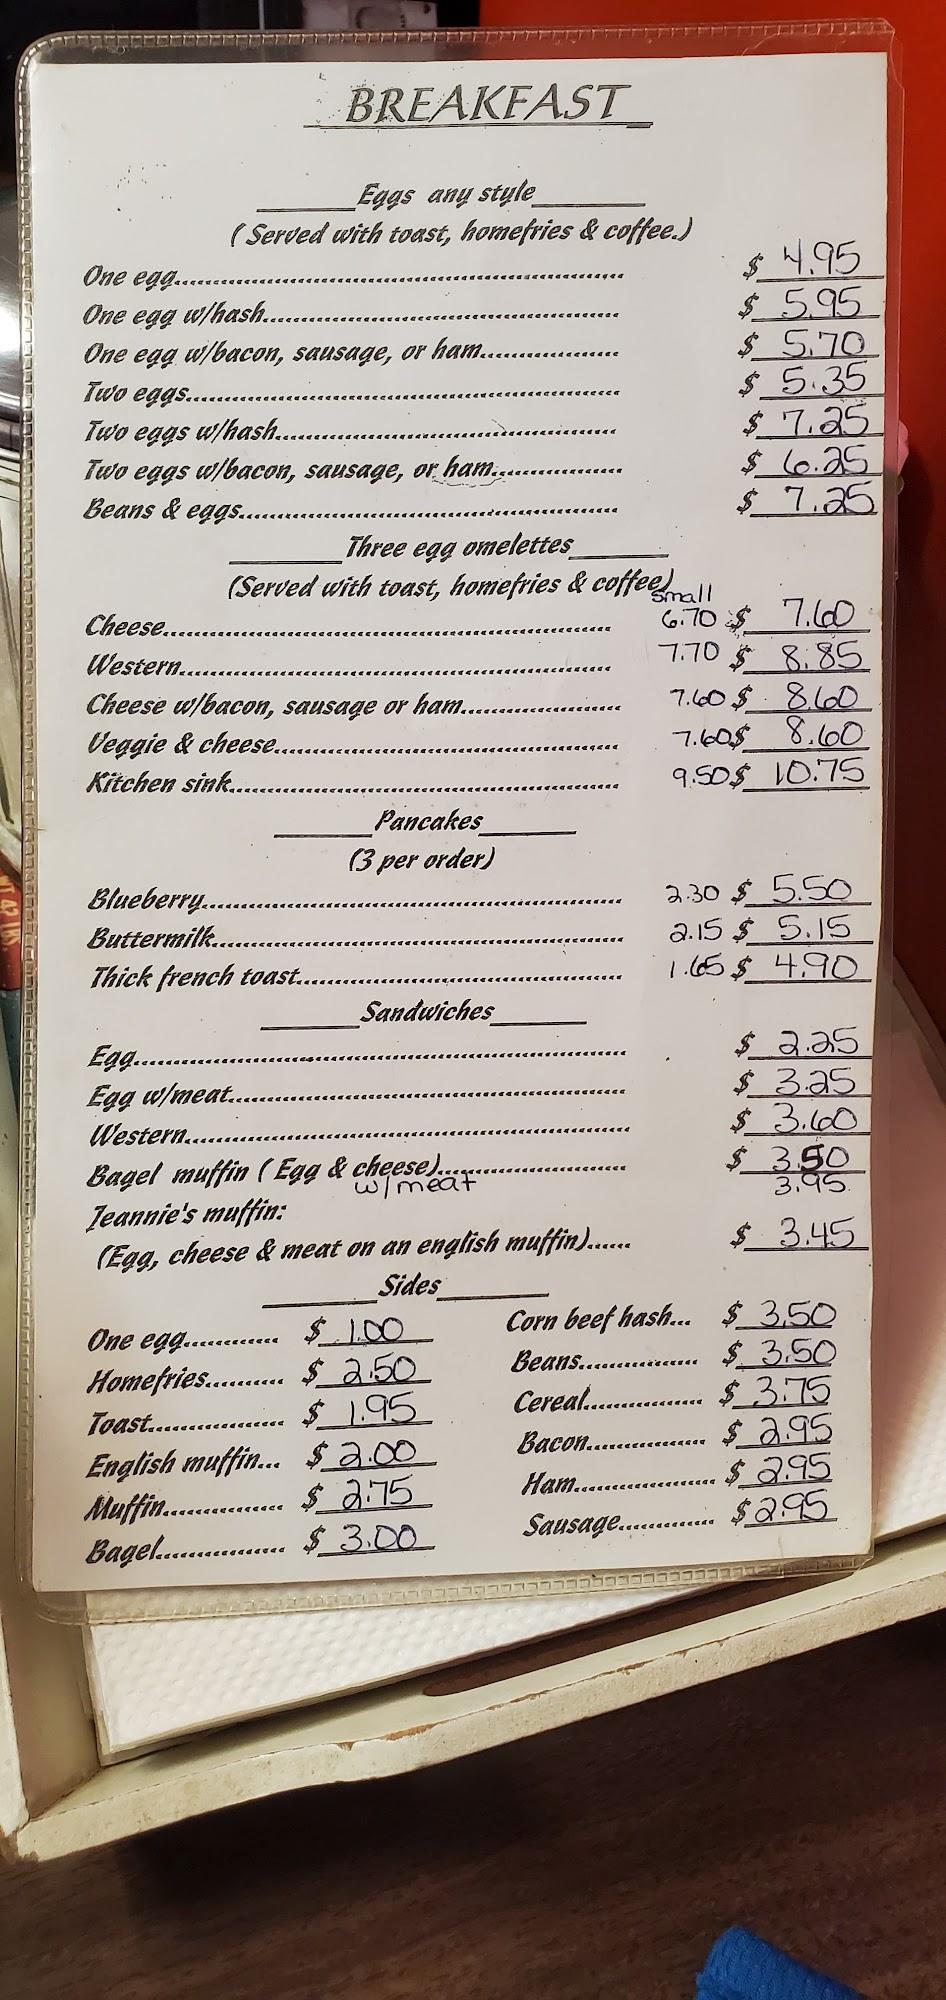 BREAKFAST
Eggs any style
( Served with toast, homefries & coffee.)
One egg.......... $ 4.95
One egg w/hash.......... $ 5.95
One egg w/bacon, sausage, or ham.......... $ 5.70
Two eggs.......... $ 5.35
Two eggs w/hash.......... $ 7.25
Two eggs w/bacon, sausage, or ham.......... $ 6.25
Beans & eggs.......... $ 7.25
Three egg omelettes
(Served with toast, homefries & coffee)
small
Cheese.......... 6.70 $ 7.60
Western.......... 7.70 $ 8.85
Cheese w/bacon, sausage or ham.......... 7.60 $ 8.60
Veggie & cheese.......... 7.60 $ 8.60
Kitchen sink.......... 9.50 $ 10.75
Pancakes
(3 per order)
Blueberry.......... 2.30 $ 5.50
Buttermilk.......... 2.15 $ 5.15
Thick french toast.......... 1.65 $ 4.90
Sandwiches
Egg.......... $ 2.25
Egg w/meat.......... $ 3.25
Western.......... $ 3.60
Bagel muffin ( Egg & cheese).......... $ 3.50
w/meat 3.95
Jeannie's muffin:
(Egg, cheese & meat on an english muffin)...... $ 3.45
Sides
One egg.......... $ 1.00
Homefries.......... $ 2.50
Toast.......... $ 1.95
English muffin... $ 2.00
Muffin.......... $ 2.75
Bagel.......... $ 3.00
Corn beef hash... $ 3.50
Beans.......... $ 3.50
Cereal.......... $ 3.75
Bacon.......... $ 2.95
Ham.......... $ 2.95
Sausage.......... $ 2.95